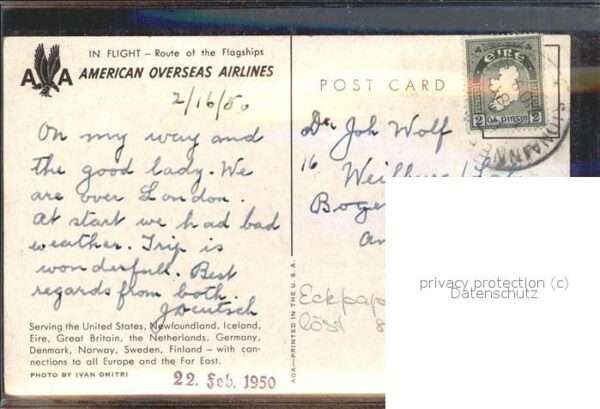 IN FLIGHT – Route of the Flagships
AA AMERICAN OVERSEAS AIRLINES
2/16/50
On my way and
the good lady. We
are over London.
At start we had bad
weather. Trip is
wonderfull. Best
regards from both.
JDeutsch
Serving the United States, Newfoundland, Iceland,
Eire, Great Britain, the Netherlands, Germany,
Denmark, Norway, Sweden, Finland – with con-
nections to all Europe and the Far East.
PHOTO BY IVAN DMITRI
22. Feb. 1950
AOA—PRINTED IN THE U.S.A.
POST CARD
ÉIRE
2 2
Dr Joh Wolf
16
Eckpap
löst 8
privacy protection (c)
Datenschutz